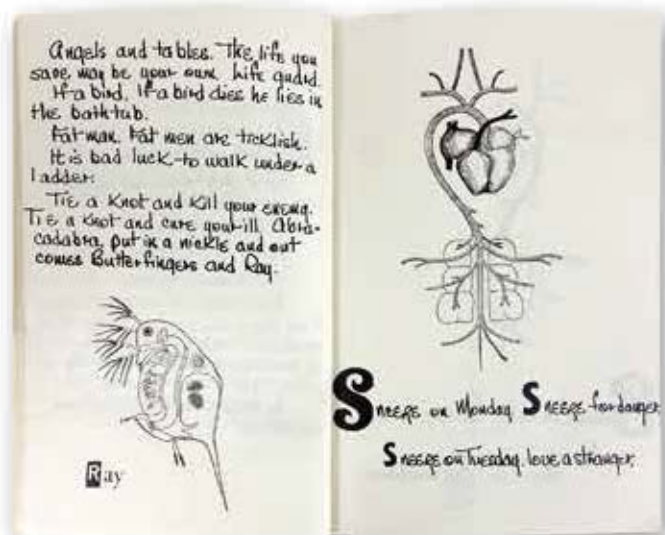 Angels and tables. The life you
save may be your own. Life guard.
If a bird. If a bird dies he lies in
the bathtub.
Fat man. Fat men are ticklish.
It is bad luck to walk under a
ladder.
Tie a knot and kill your enemy.
Tie a knot and cure your ill. Abra-
cadabra, put in a nickle and out
comes Butterfingers and Ray.
Ray
Sneeze on Monday Sneeze for danger
Sneeze on Tuesday. love a stranger.